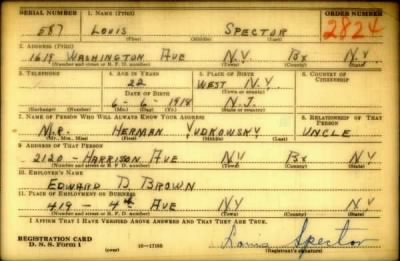 SERIAL NUMBER 1. NAME (Print) ORDER NUMBER
587 LOUIS SPECTOR 2824
(First) (Middle) (Last)
2. ADDRESS (Print)
1619 WASHINGTON AVE N.Y. BX N.Y.
(Number and street or R. F. D. number) (Town) (County) (State)
3. TELEPHONE 4. AGE IN YEARS 5. PLACE OF BIRTH 6. COUNTRY OF CITIZENSHIP
22 WEST N.Y.
DATE OF BIRTH (Town or county)
6-6-1918 N.J.
(Exchange) (Number) (Mo.) (Day) (Yr.) (State or country)
7. NAME OF PERSON WHO WILL ALWAYS KNOW YOUR ADDRESS 8. RELATIONSHIP OF THAT PERSON
MR. HERMAN YUDKOWSKY UNCLE
(Mr., Mrs., Miss) (First) (Middle) (Last)
9. ADDRESS OF THAT PERSON
2120 - HARRISON AVE N.Y. BX N.Y.
(Number and street or R. F. D. number) (Town) (County) (State)
10. EMPLOYER'S NAME
EDWARD D. BROWN
11. PLACE OF EMPLOYMENT OR BUSINESS
419 - 4th AVE N.Y. N.Y.
(Number and street or R. F. D. number) (Town) (County) (State)
I AFFIRM THAT I HAVE VERIFIED ABOVE ANSWERS AND THAT THEY ARE TRUE.
REGISTRATION CARD Louis Spector
D. S. S. FORM 1 (Registrant's signature)